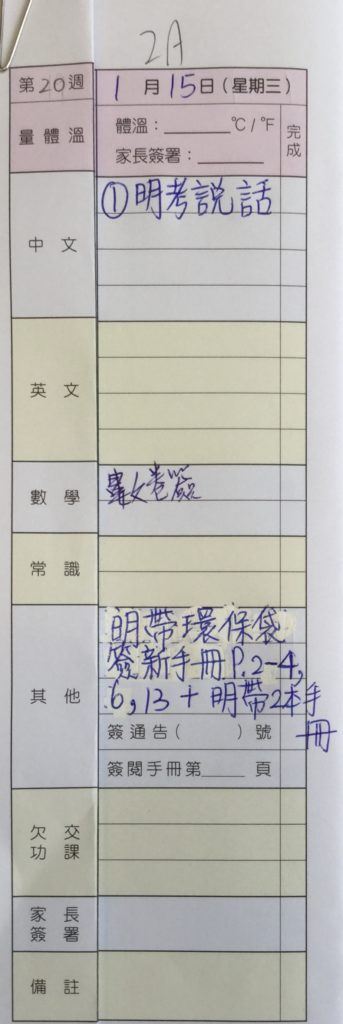 2A
第20週 1月15日(星期三)
量體溫 體溫：______℃/℉ 完成
家長簽署：______
中文 ①明考說話
英文
數學 數卷簽
常識
其他 明帶環保袋
簽新手冊P.2-4,
6,13+明帶2本手
冊
簽通告( )號
簽閱手冊第____頁
欠交功課
家長簽署
備註